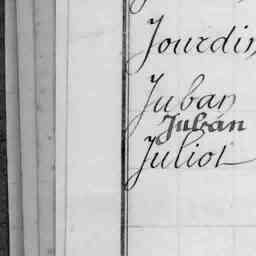 Jourdin
Juban
Juban
Juliot